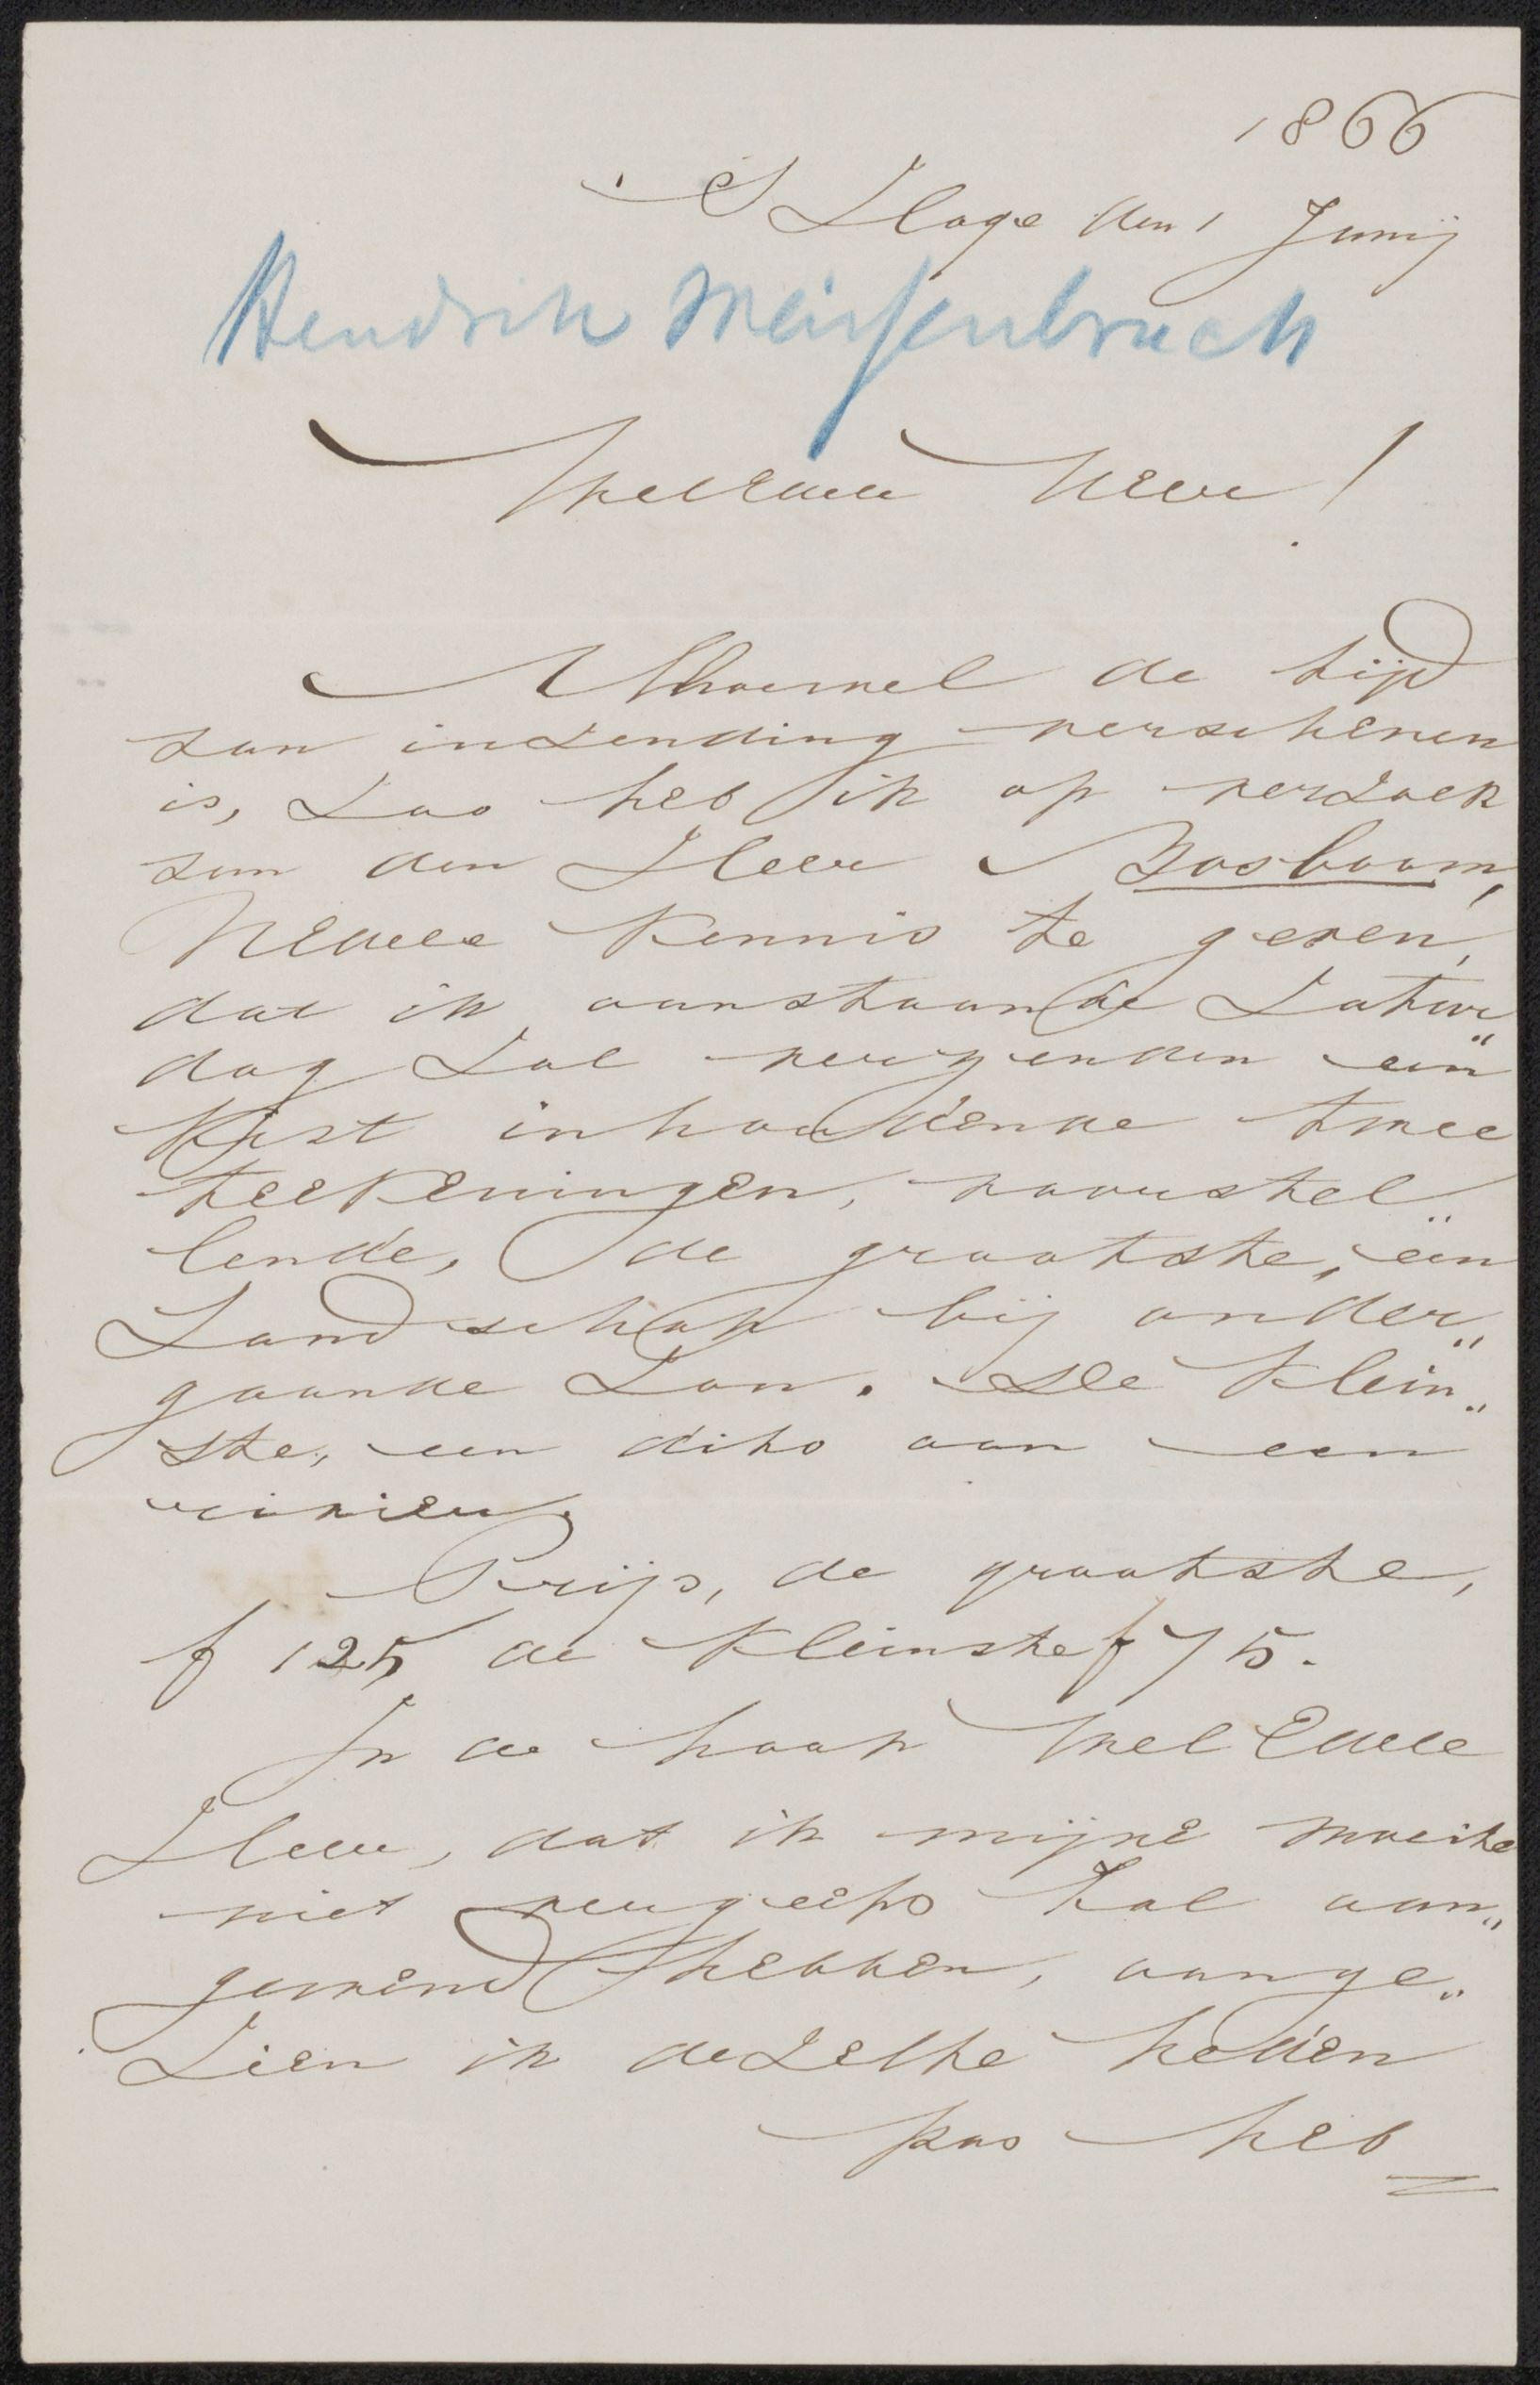 1866
'S Hage den 1 Junij
Hendrik Weissenbruch
WelEdele Heer!
Alhoewel de tijd
van inzending verschenen
is, Zoo heb ik op verzoek
van den Heer Bosboom,
UEdele kennis te geven,
dat ik aanstaande Zatur
dag Zal verzenden een
kist inhoudende twee
teekeningen, voorstel„
lende, de grootste, een
Landschap bij onder„
gaande Zon. De klein„
ste, een dito aan een
rivier.
Prijs, de grootste,
f 125 de kleinste f 75.
In de hoop Wel Edele
Heer, dat ik mijne moeite
niet vergeefs Zal aan„
gewend hebben, aange„
Zien ik dezelve heden
pas heb